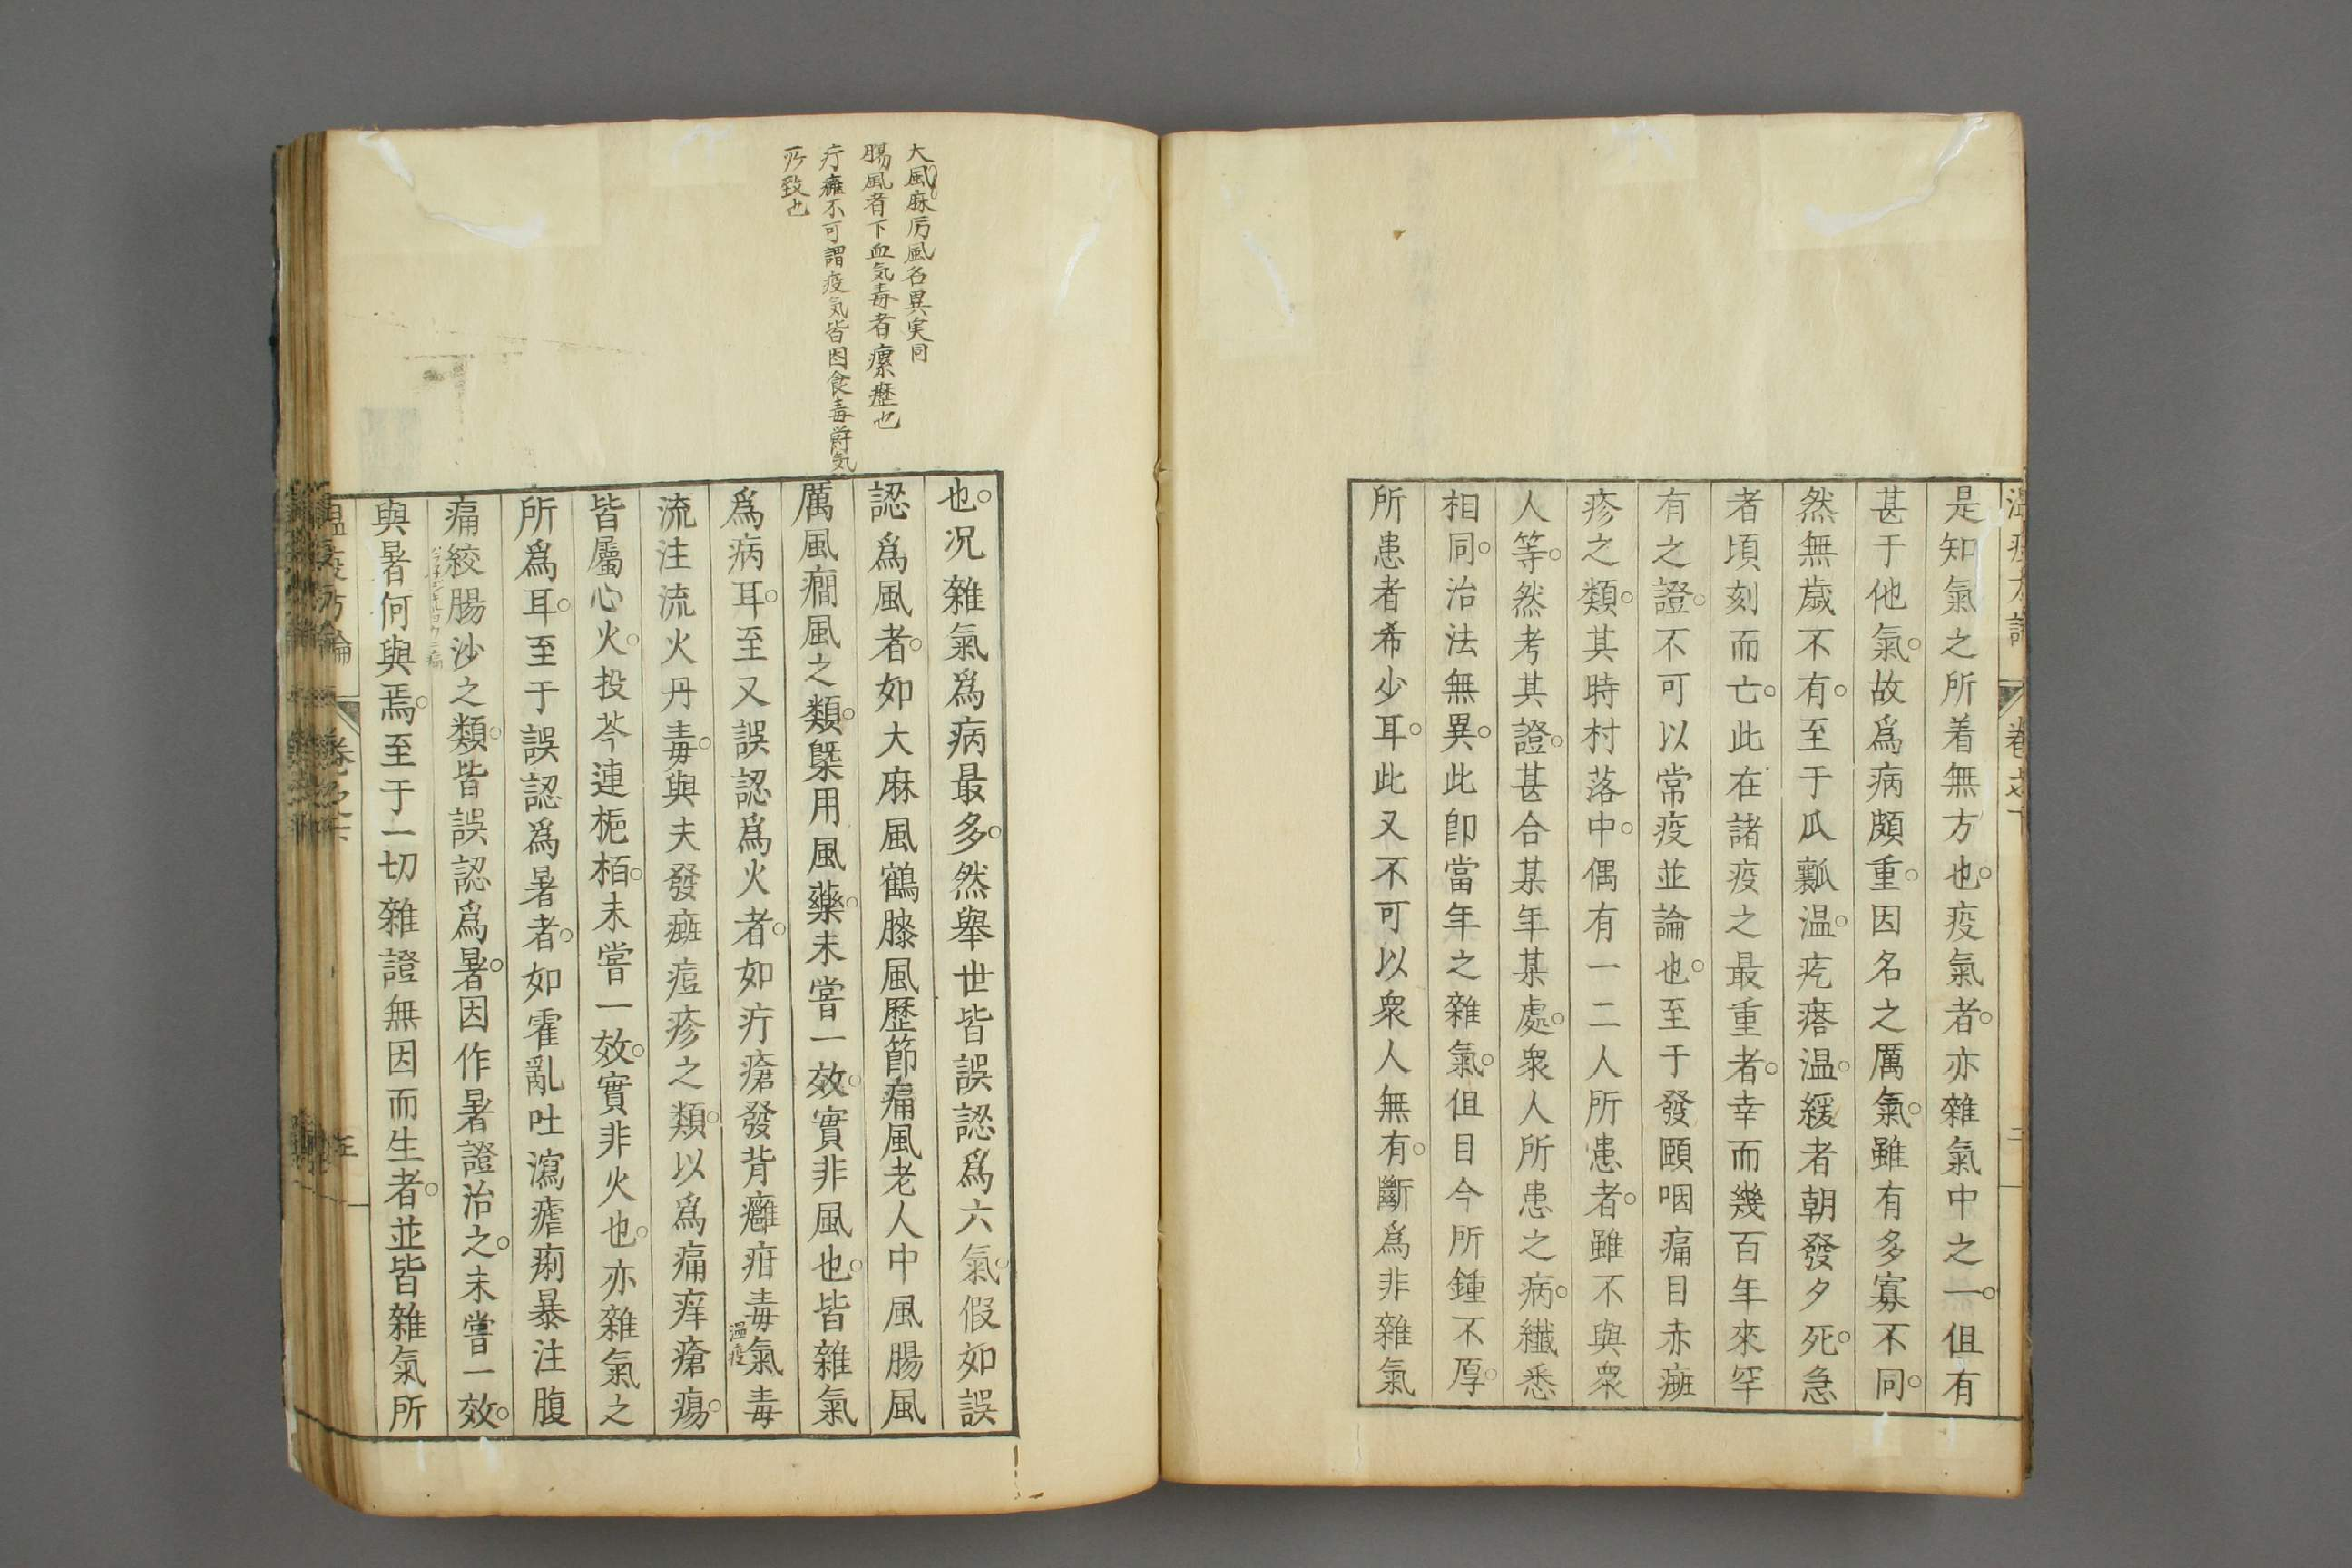 是知氣之所着無方也。疫氣者。亦雜氣中之一。但有
甚于他氣。故爲病頗重。因名之厲氣。雖有多寡不同。
然無歲不有。至于瓜瓤温。疙瘩温。緩者朝發夕死。急
者頃刻而亡。此在諸疫之最重者。幸而幾百年來罕
有之證。不可以常疫並論也。至于發頤咽痛目赤癍
疹之類。其時村落中。偶有一二人所患者。雖不與衆
人等。然考其證。甚合某年某處。衆人所患之病。纖悉
相同。治法無異。此卽當年之雜氣。但目今所鍾不厚。
所患者希少耳。此又不可以衆人無有。斷爲非雜氣
也。况雜氣爲病最多。然舉世皆誤認爲六氣。假如誤
認爲風者。如大麻風鶴膝風歷節痛風老人中風腸風
厲風癇風之類。槩用風藥。未嘗一效。實非風也。皆雜氣
爲病耳。至又誤認爲火者。如疔瘡發背癰疽毒氣毒
流注流火丹毒。與夫發癍痘疹之類。以爲痛痒瘡瘍。
皆屬心火。投芩連梔栢。未嘗一效。實非火也。亦雜氣之
所爲耳。至于誤認爲暑者。如霍亂吐瀉瘧痢暴注腹
痛絞腸沙之類。皆誤認爲暑。因作暑證治之。未嘗一效。
與暑何與焉。至于一切雜證無因而生者。並皆雜氣所
大風麻厉風名異実同
腸風者下血気毒者瘰癧也
疔癰不可謂疫気皆因食毒欝気
所致也
温疫
卷之下